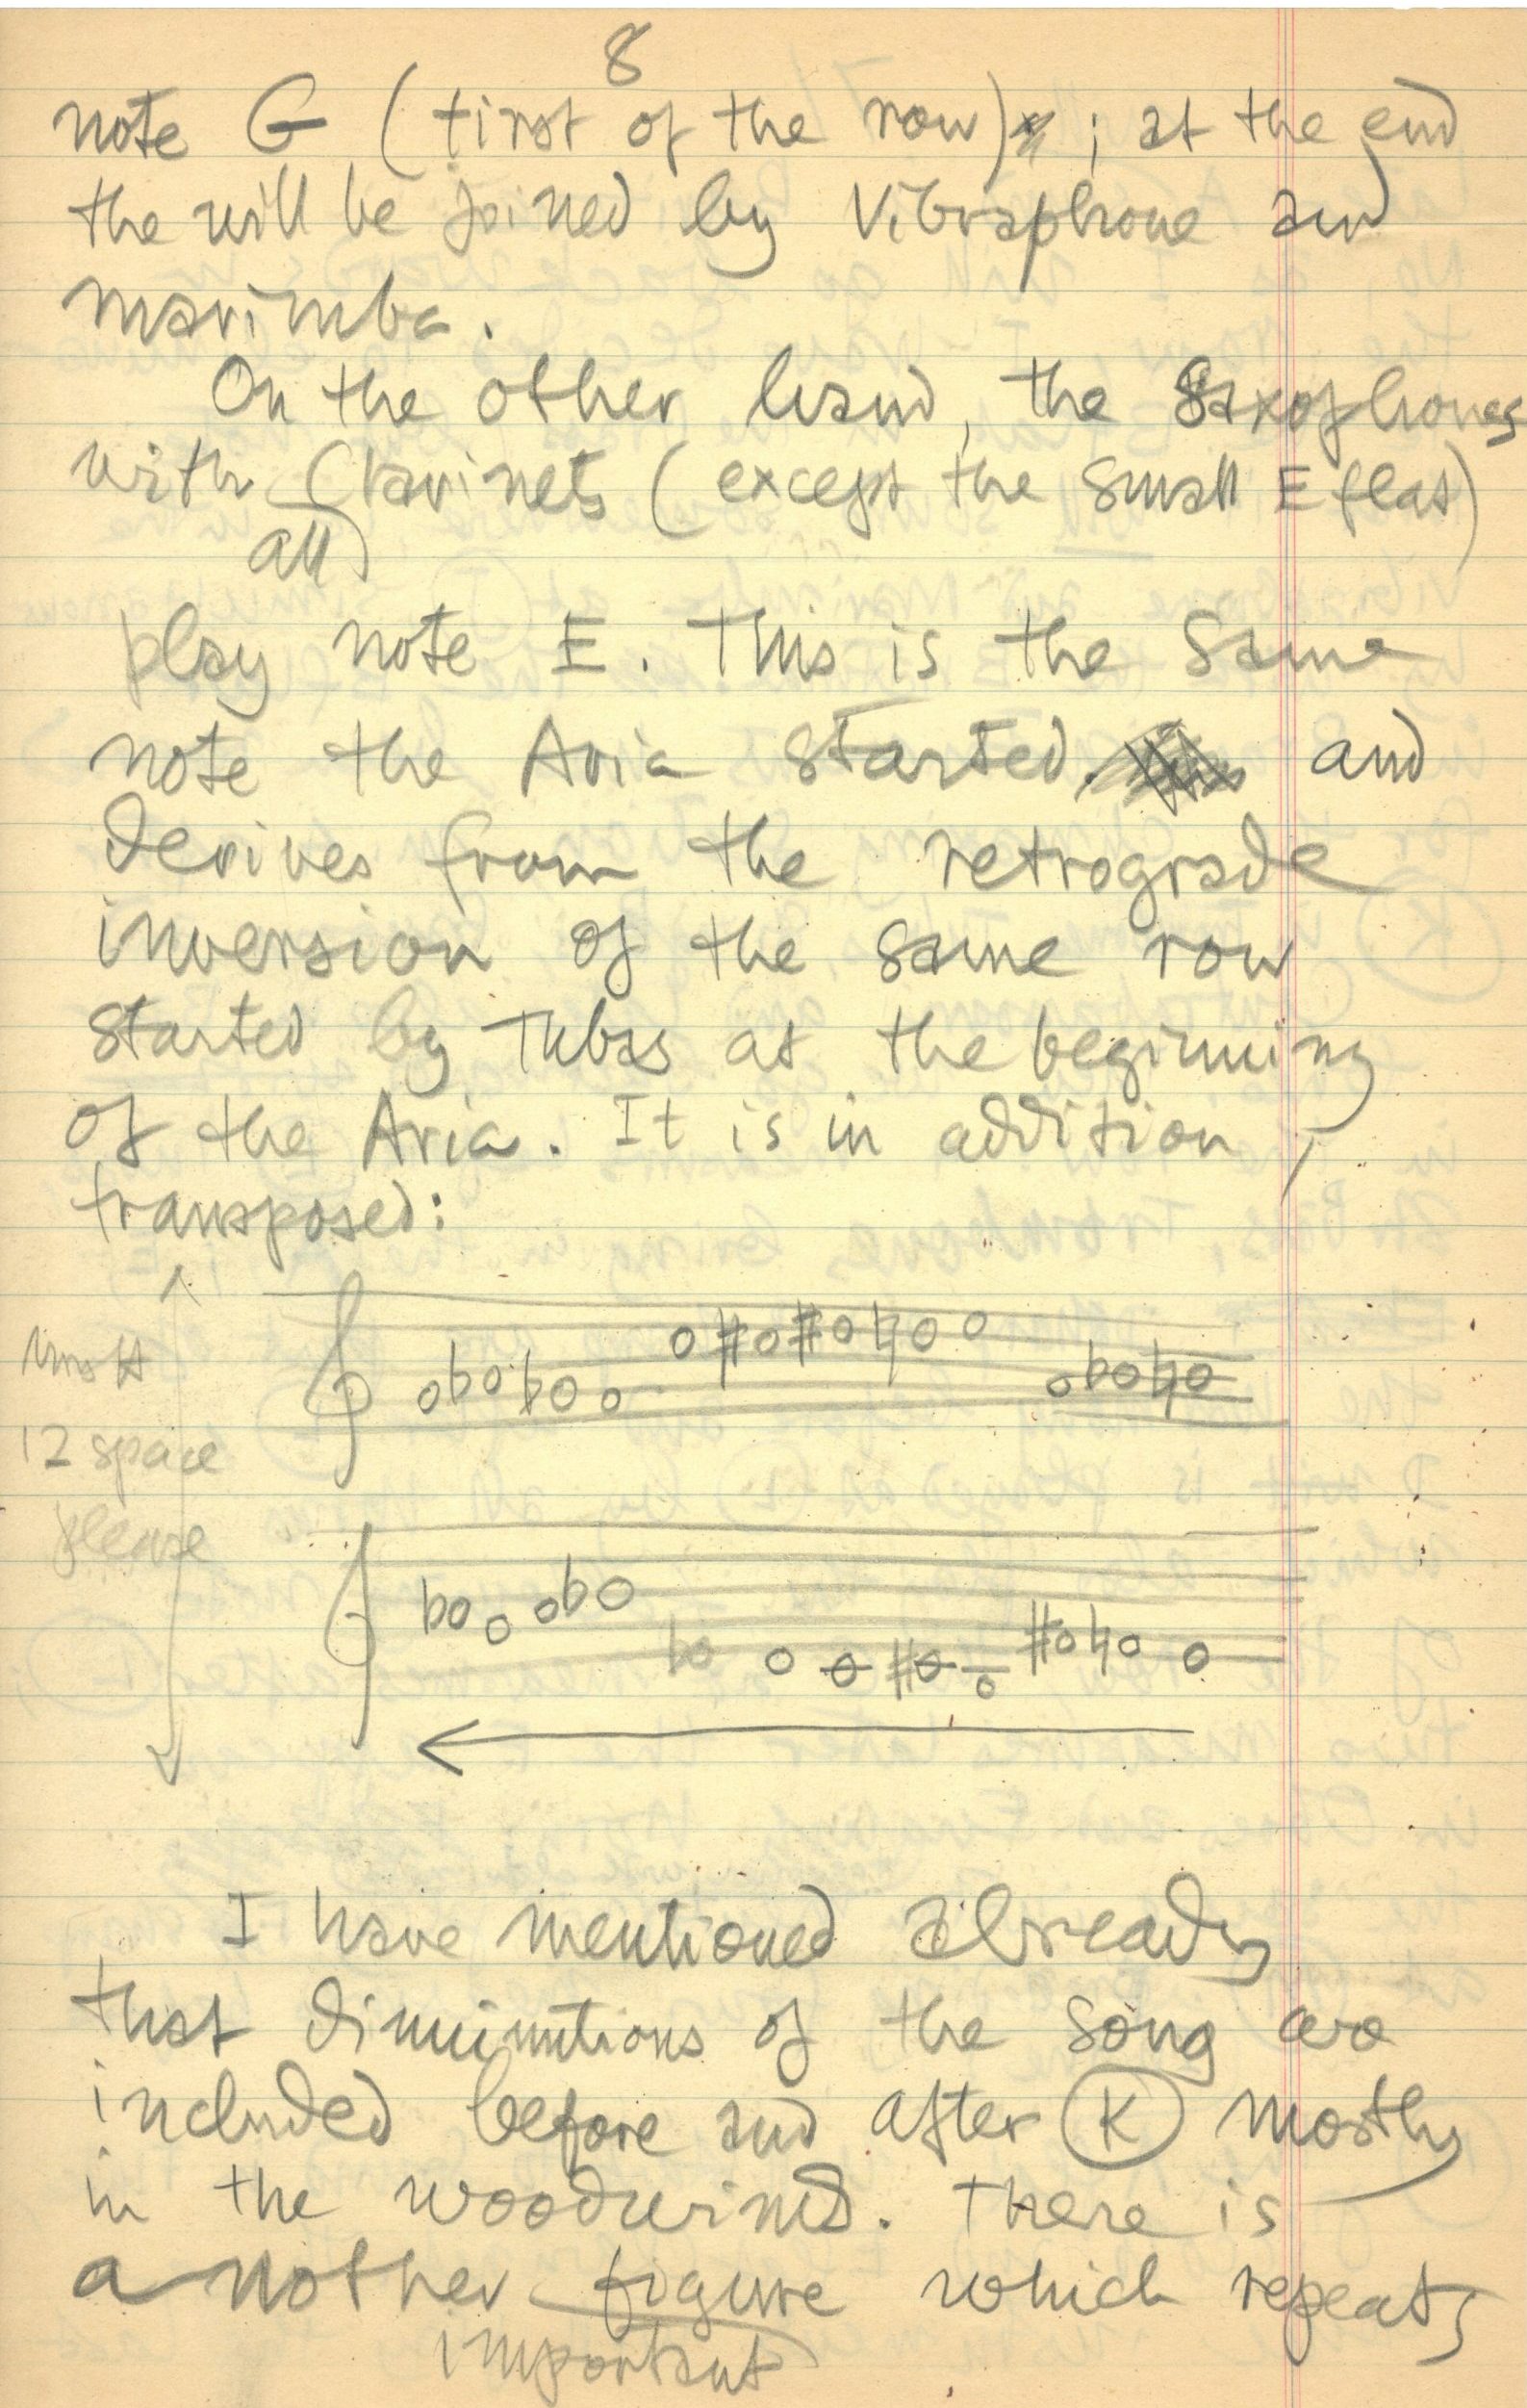 8
note G (first of the row) ; at the end
the will be joined by Vibraphone and
marimba.
On the other hand, the Saxophones
with Clarinets (except the small E flat)
all
play note E. This is the same
note the Aria started and
derives from the retrograde
inversion of the same row
started by Tubas at the beginning
of the Aria. It is in addition,
transposed:
12 space
please
I have mentioned already
that diminutions of the song are
included before and after K mostly
in the woodwinds. There is
another figure which repeats
important